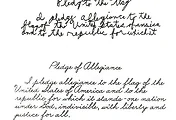 Pledge to the Flag
I pledge allegiance to the
flag of the United States of America
and to the republic for which it
Pledge of Allegiance
I pledge allegiance to the flag of the
United States of America and to the
republic for which it stands one nation
under God, indivisible, with liberty and
justice for all.